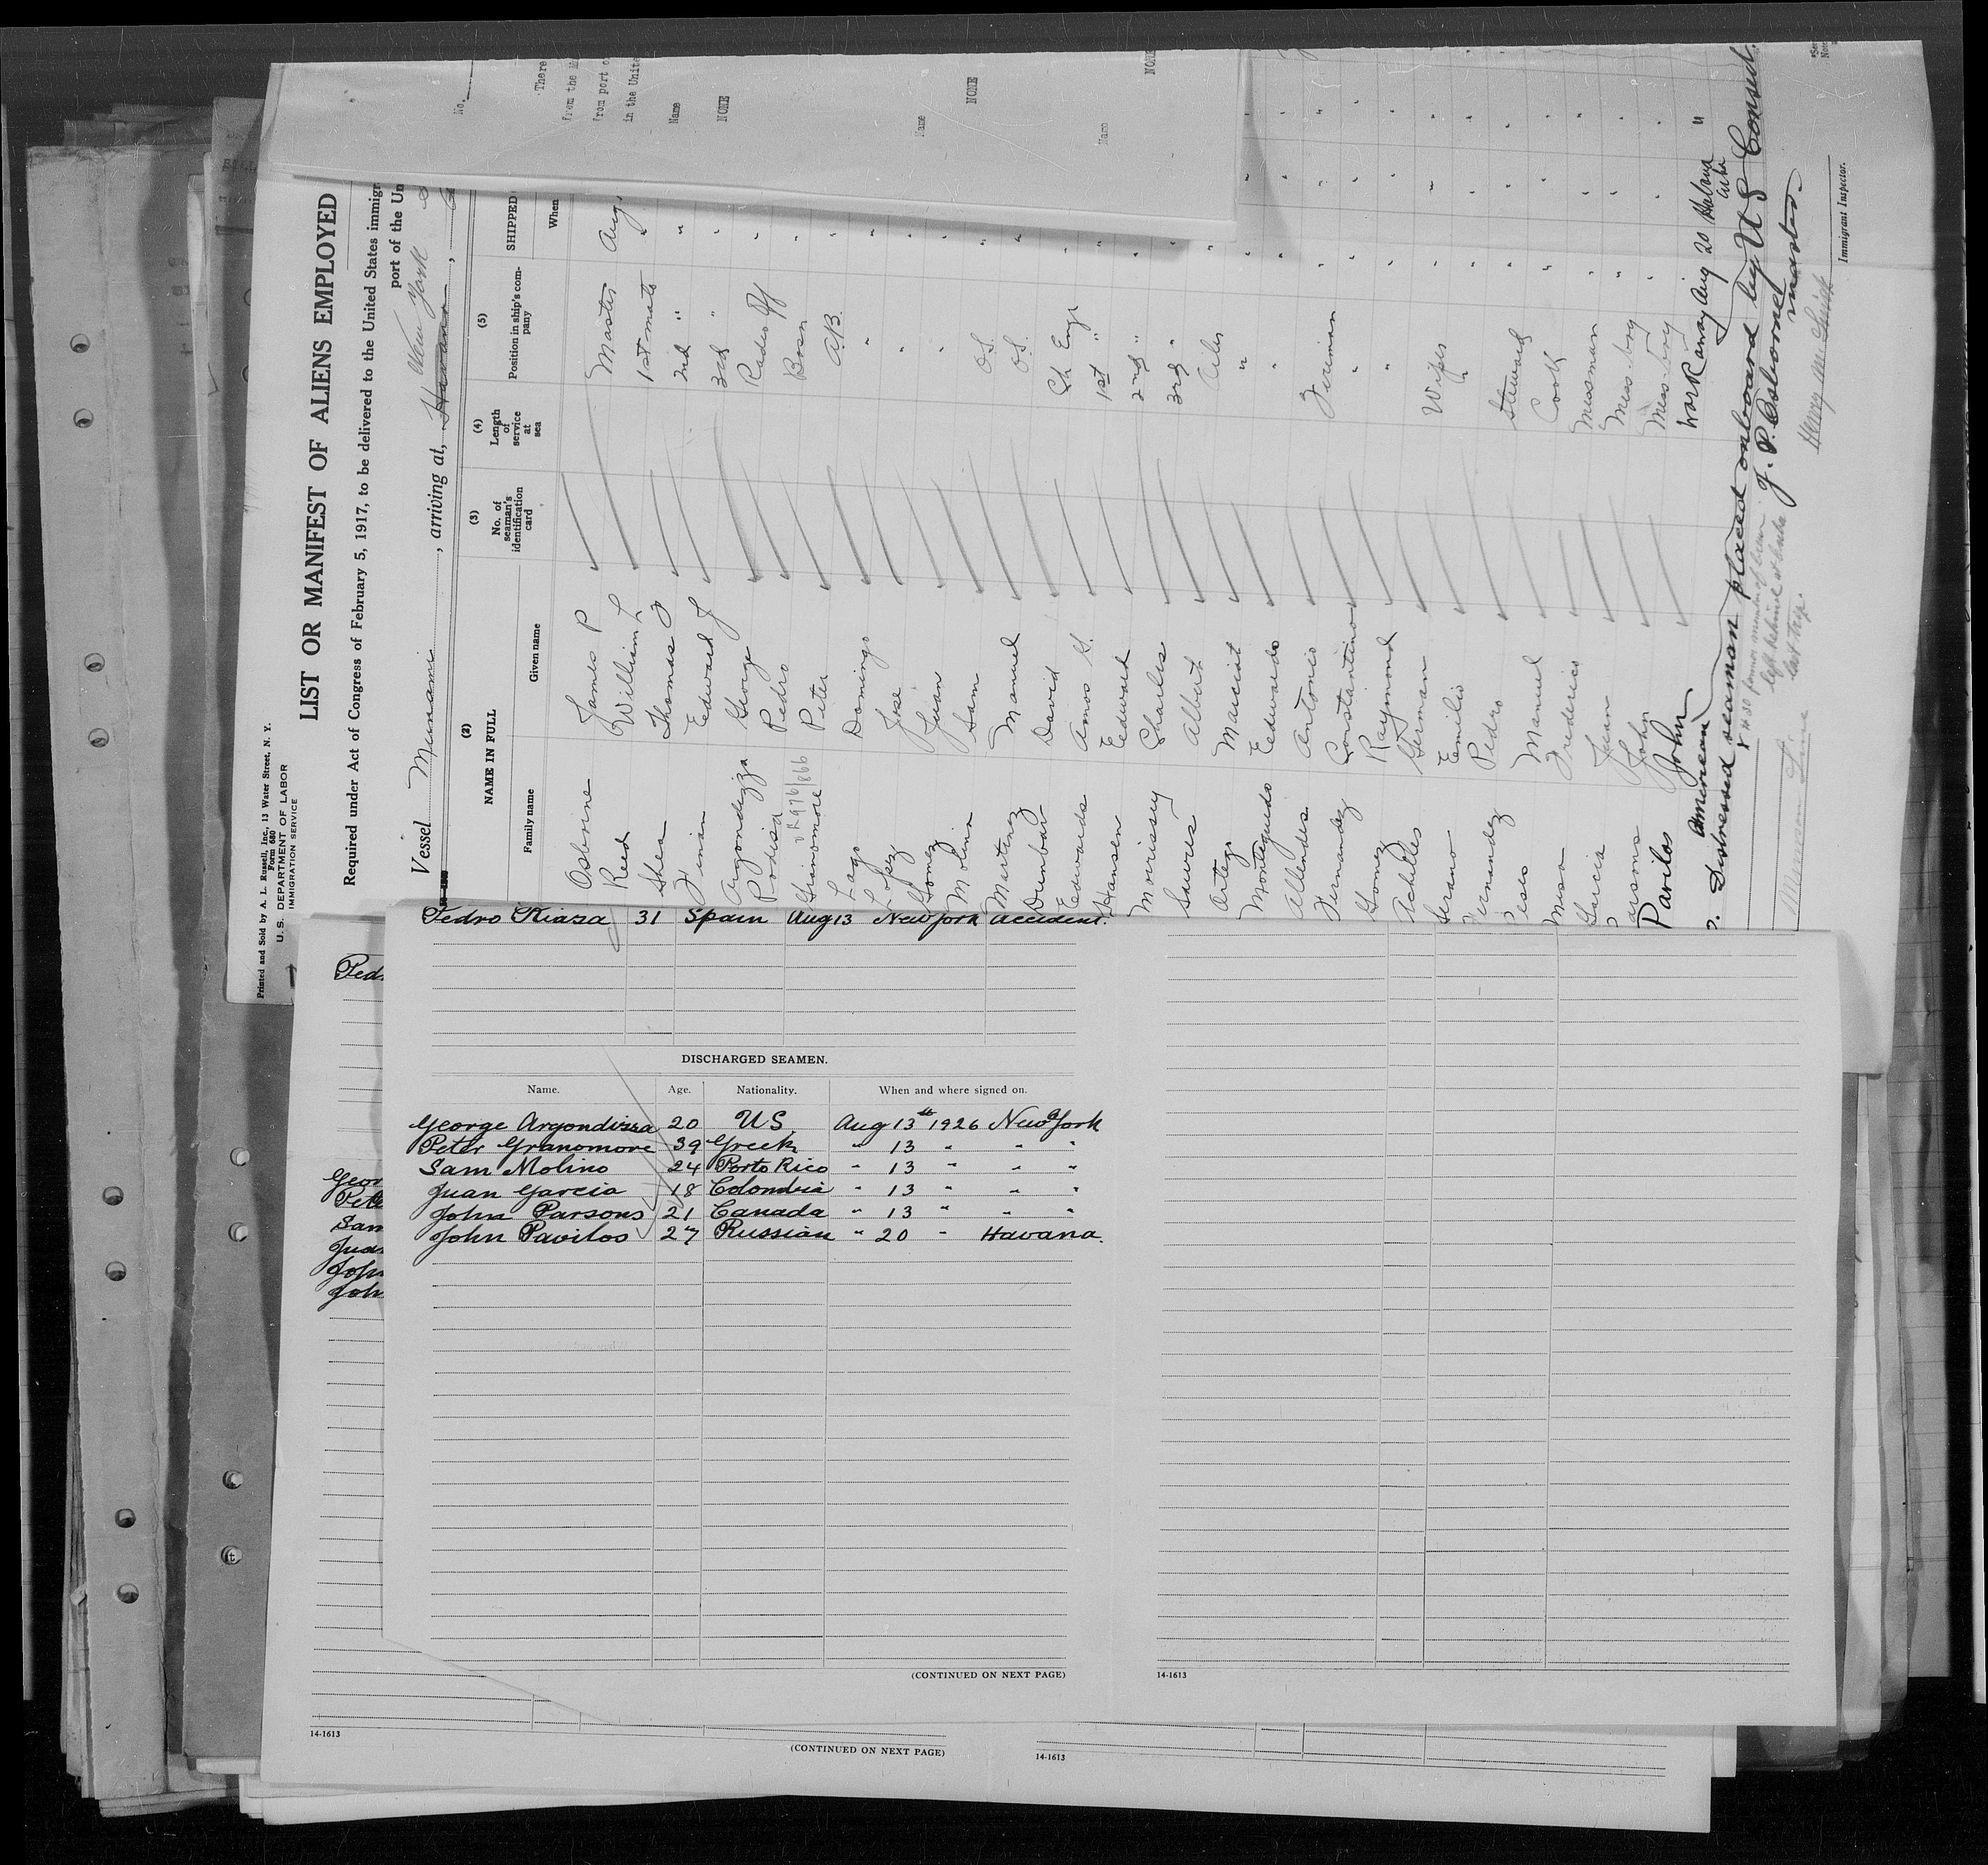 Printed and Sold by A. L. Russell, Inc., 13 Water Street, N. Y.
Form 680
U. S. DEPARTMENT OF LABOR
IMMIGRATION SERVICE
LIST OR MANIFEST OF ALIENS EMPLOYED
Required under Act of Congress of February 5, 1917, to be delivered to the United States immigr
port of the Un
New York
Vessel Munami, arriving at, Havana,
(2) (3) (4) (5)
NAME IN FULL No. of seaman's identification card Length of service at sea Position in ship's company SHIPPED
Family name Given name When
Osborne James P Master Aug.
Reed William L 1st mate "
Shea Thomas J 2nd " "
Edward J 3rd " "
Argondizza George Radio Op
Pedro Bosn "
Peter A.B. "
Lago Domingo " "
Lopez Jose " "
Gomez Juan " "
Molino Sam O.S. "
Martinez Manuel O.S. "
Dunbar David Ch Engr
Edwards Amos G. 1st " "
Hansen Edward 2nd " "
Morrissey Charles 3rd " "
Albert Oiler
Ortego "
Eedwardo "
Allendes Antonio Fireman "
Fernandez Constantino " "
Gomez Raymond " "
Achilles German Wiper "
Serano Emilio " "
Pedro Steward "
Manuel Cook "
Frederico Messman "
Garcia Juan Mess boy "
arsons John Mess boy "
Pavilos John workaway Aug 20 Habana "
Cuba
American
Distressed seaman placed onboard by U S Consul.
J. P. Osborne
master
last trip.
Munson Line
Immigrant Inspector.
No.
There
from the M
from port o
in the Unite
Name
NONE
Name
NONE
Name
NONE
Pedro Kiaza 31 Spain Aug 13 New York accident.
DISCHARGED SEAMEN.
Name. Age. Nationality. When and where signed on.
George Argondizza 20 U S. Aug 13th 1926 New York
Peter Granomore 39 Greek " 13 " " "
Sam Molino 24 Porto Rico " 13 " " "
Juan Garcia 18 Colombia " 13 " " "
John Parsons 21 Canada " 13 " " "
John Pavilos 27 Russian " 20 " Havana.
(CONTINUED ON NEXT PAGE)
14-1613
Ped
Geor
Pete
Sam
Juan
John
John
14-1613
(CONTINUED ON NEXT PAGE)
14-1613